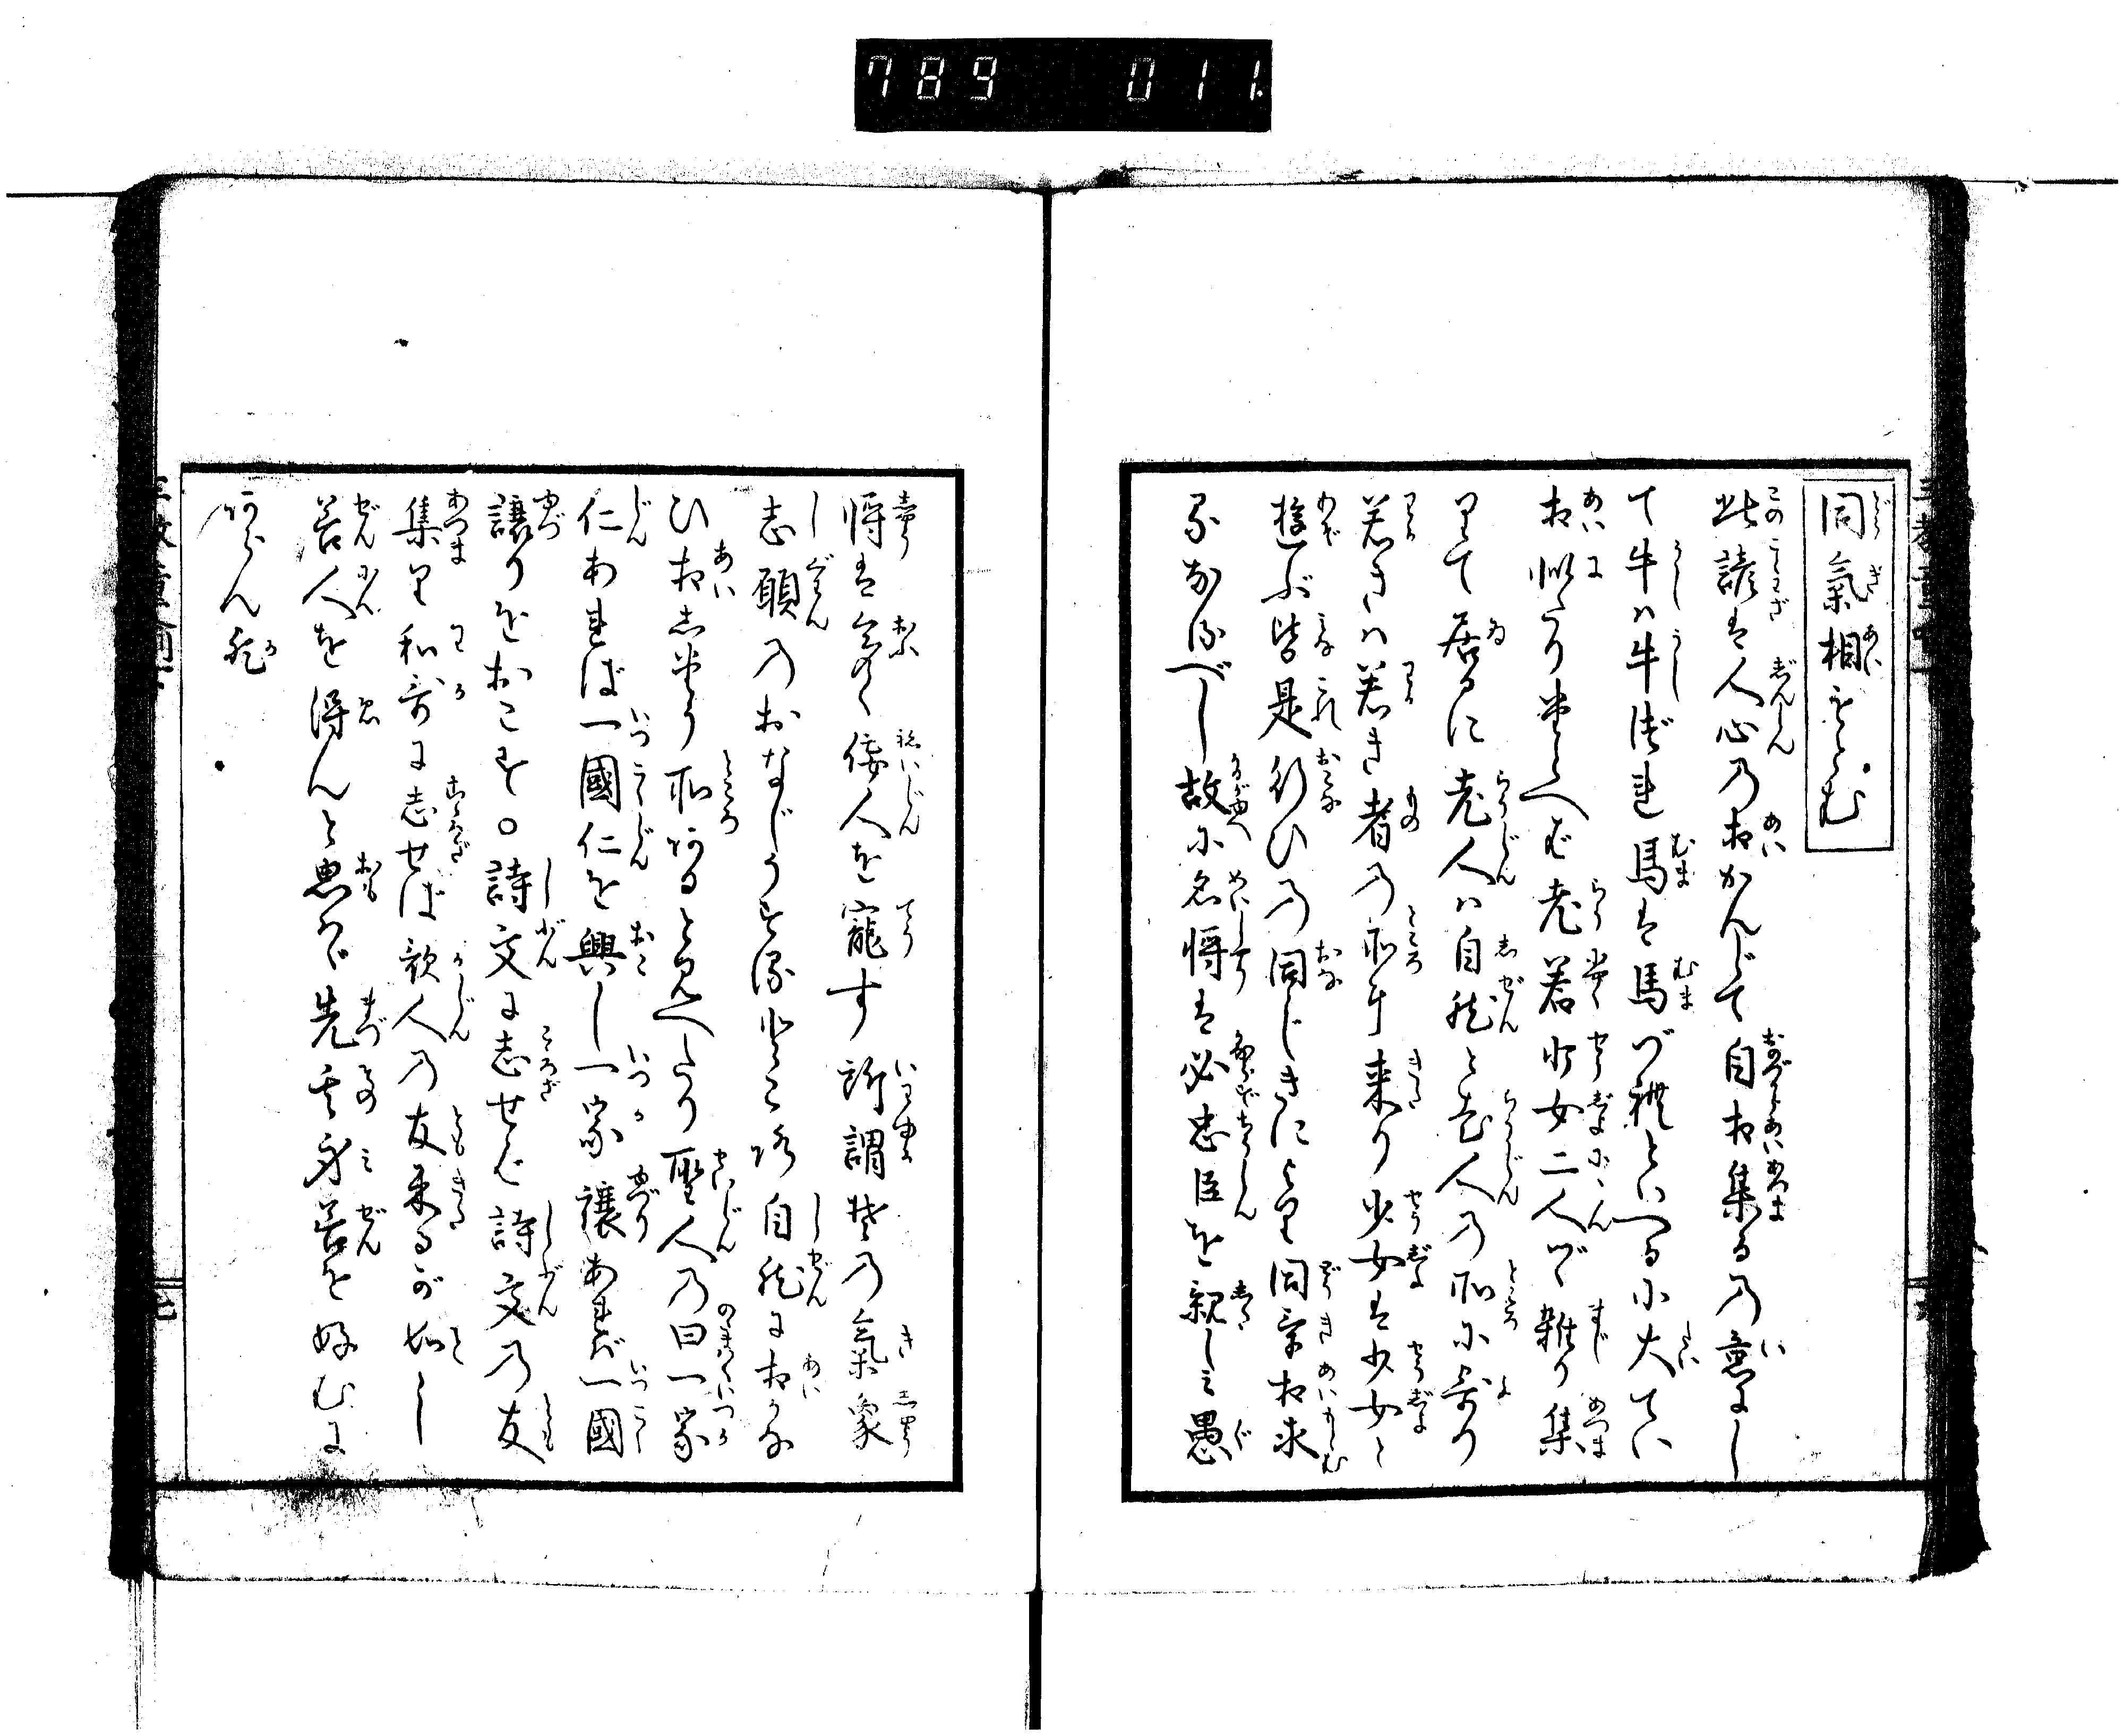 789 011
同氣相もとむ
此諺は人心の相かんじて自相集るの意にし
て牛は牛づれ馬は馬づれといへる小大てい
相似たりたとへば老若少女二人づゝ雑り集
りて居るに老人は自然と老人の所に寄り
若きは若き者の所に来り少女は少女と
遊ぶ皆是行ひの同じきにより同気相求
るなるべし故に名将は必忠臣を親しみ愚
将は多く佞人を寵す所謂其の氣象
志願のおなじうする所自然に相かな
ひ相したふ所あると見へたり聖人の曰一家
仁あれば一國仁を興し一家譲あれば一國
譲りをおこす○詩文に志せば詩文の友
集り和哥に志せば歌人の友来るが如し
善人を得んと思はゞ先其身善を好むに
あらんか